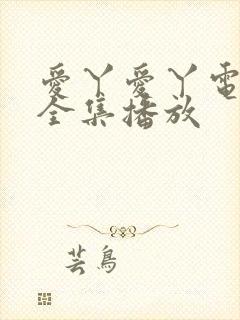 愛丫愛丫電
全集播放
芸鳥